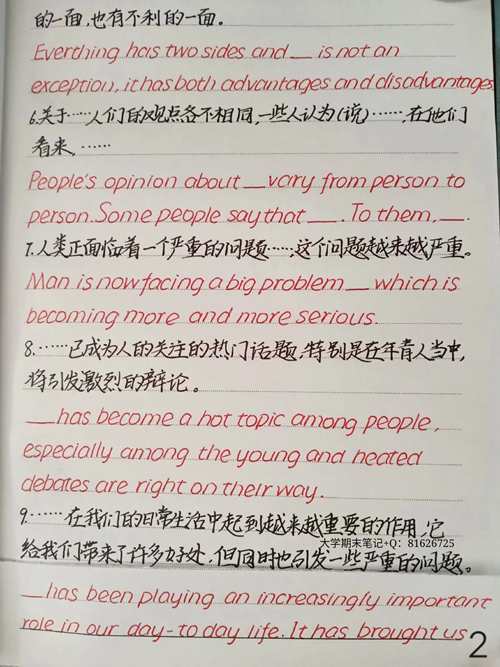 的一面,也有不利的一面。
Everthing has two sides and __ is not an
exception, it has both advantages and disadvantages
6.关于……人们的观点各不相同,一些人认为(说)……,在他们
看来,……
People's opinion about __ vary from person to
person. Some people say that __. To them, __.
7.人类正面临着一个严重的问题……,这个问题越来越严重。
Man is now facing a big problem __ which is
becoming more and more serious.
8.……已成为人的关注的热门话题,特别是在年青人当中,
将引发激烈的辩论。
__ has become a hot topic among people,
especially among the young and heated
debates are right on their way.
9.……在我们的日常生活中起到越来越重要的作用,它
大学期末笔记+Q:81626725
给我们带来了许多好处,但同时也引发一些严重的问题。
__ has been playing an increasingly important
role in our day-to day life. It has brought us
2